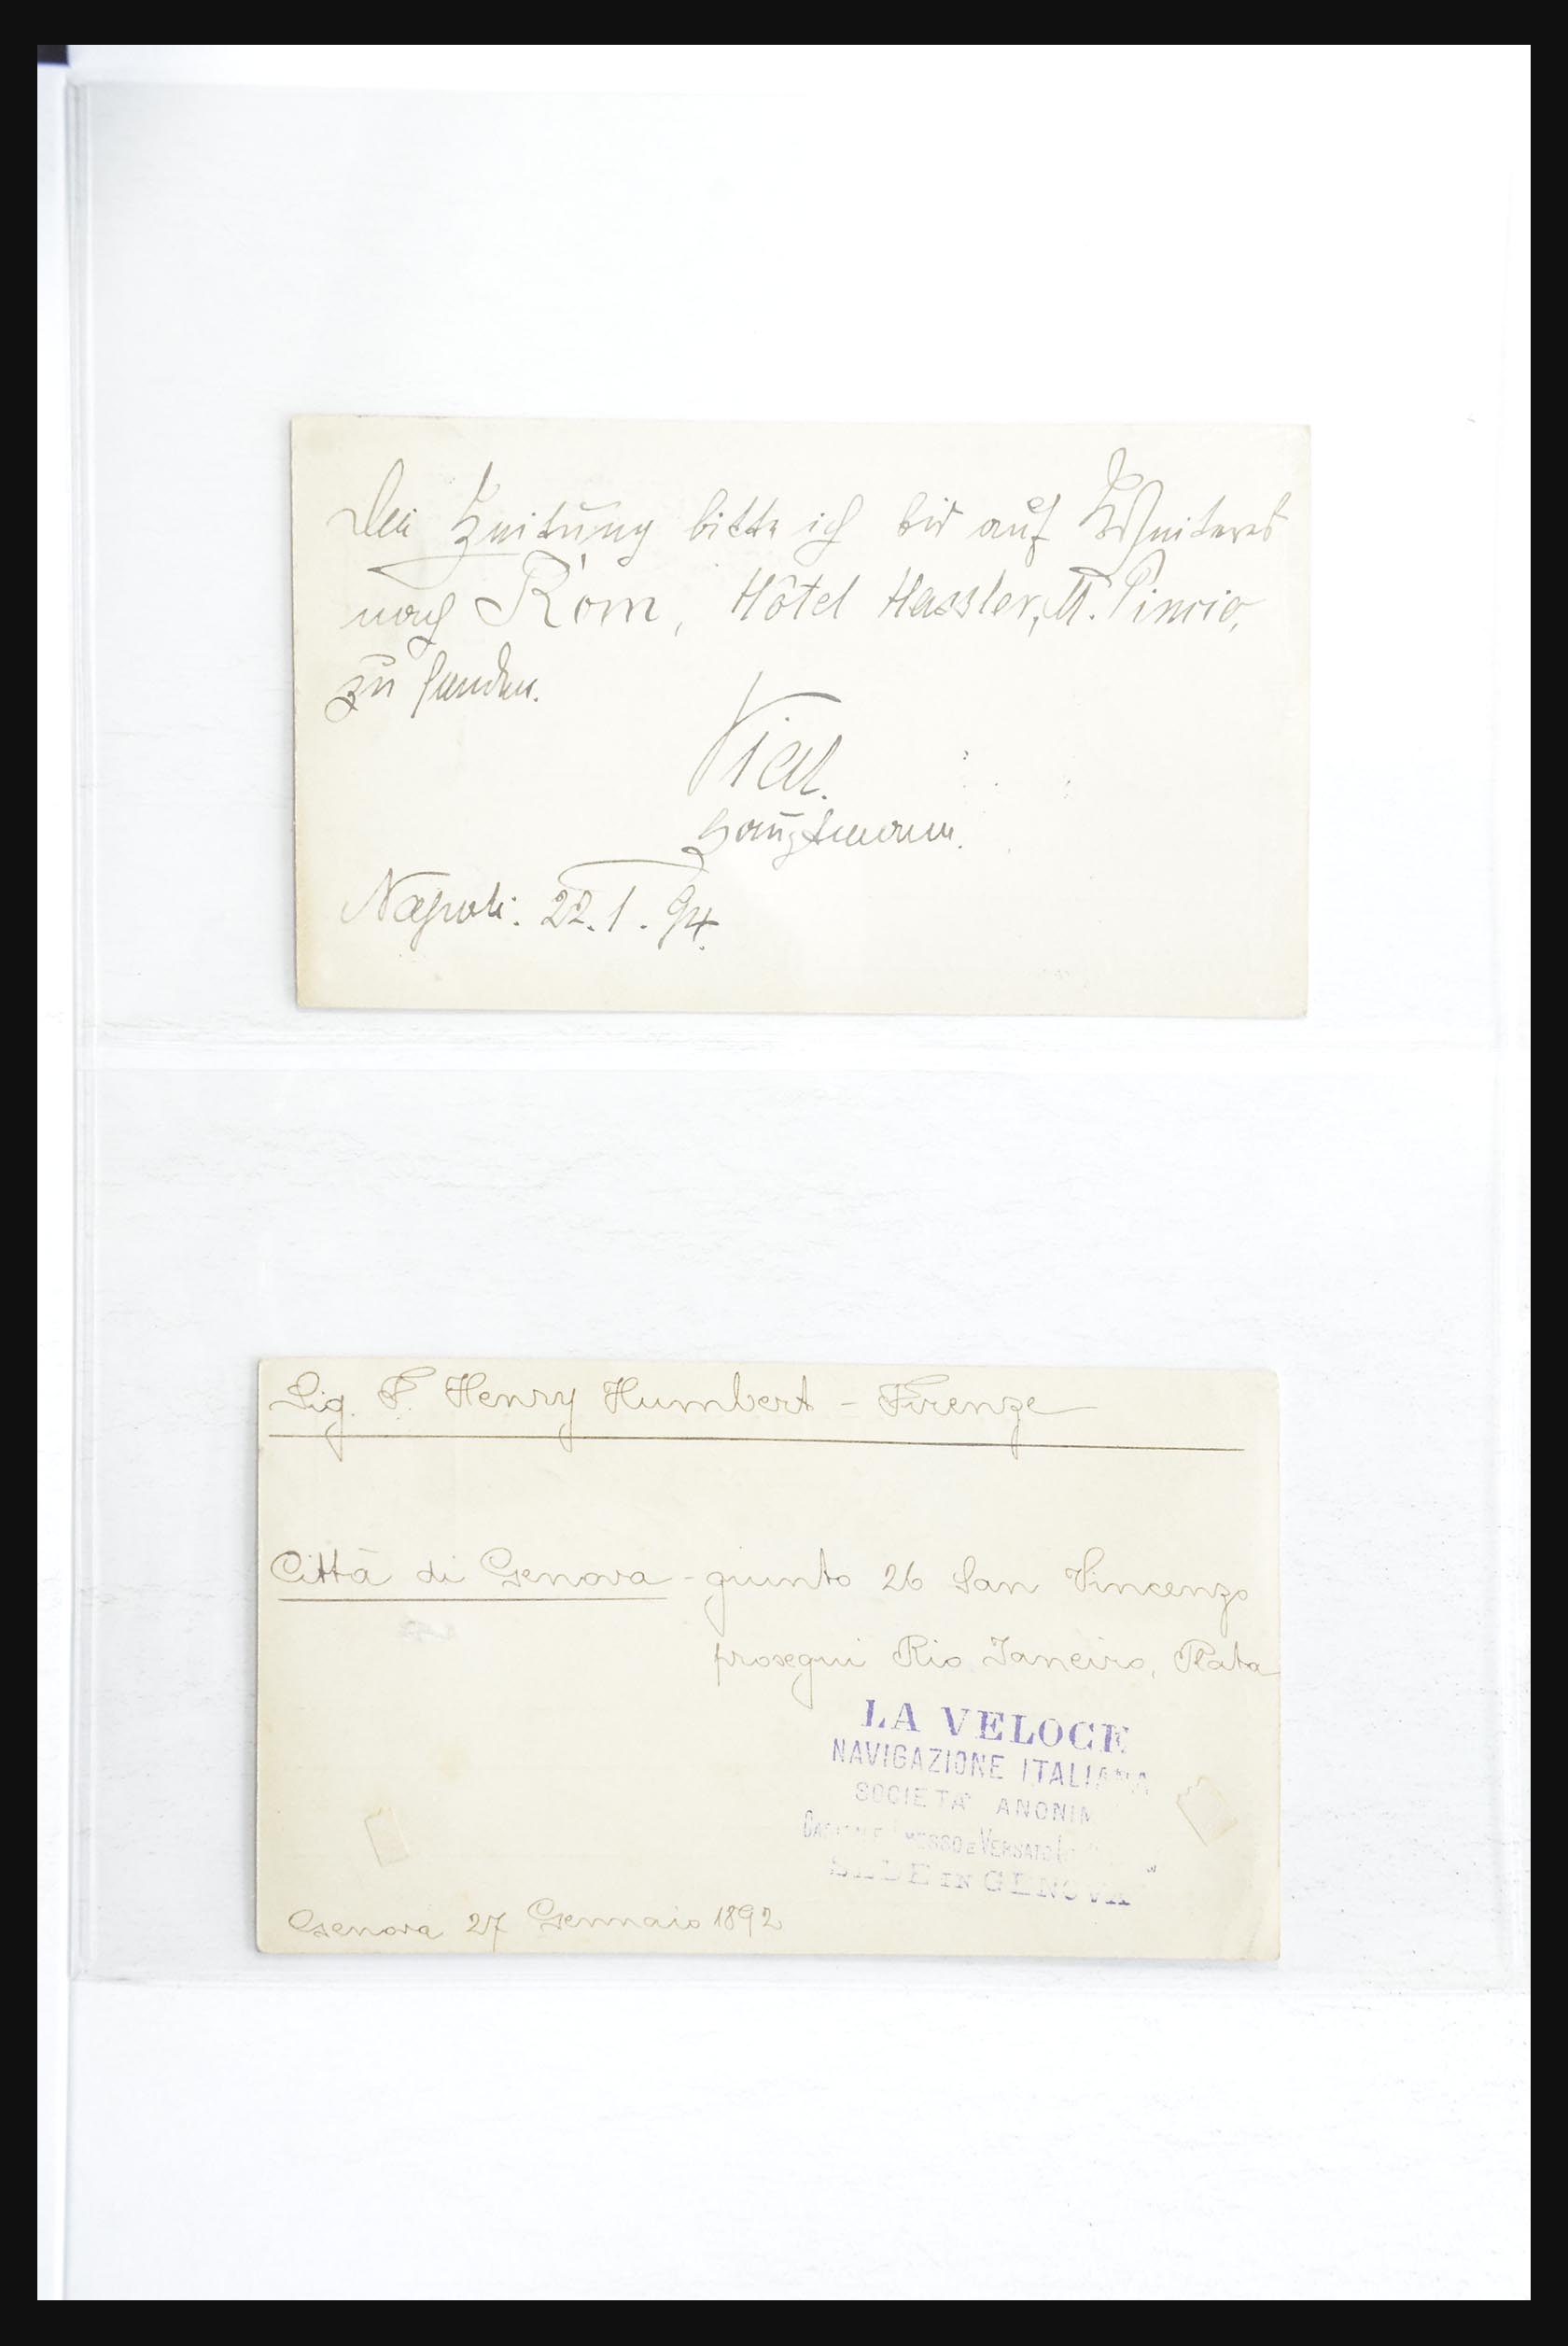 Die Zeitung bitte ich bis auf Weiteres
nach Rom, Hôtel Hassler, M. Pincio,
zu senden.
Vial.
Hauptmann.
Napoli. 22. 1. 94.
Sig. F. Henry Humbert - Firenze
Città di Genova - giunto 26 San Vincenzo
prosegui Rio Janeiro, Plata
LA VELOCE
NAVIGAZIONE ITALIANA
SOCIETÀ ANONIM
VERSATO
SEDE IN GENOVA
Genova 27 Gennaio 1892